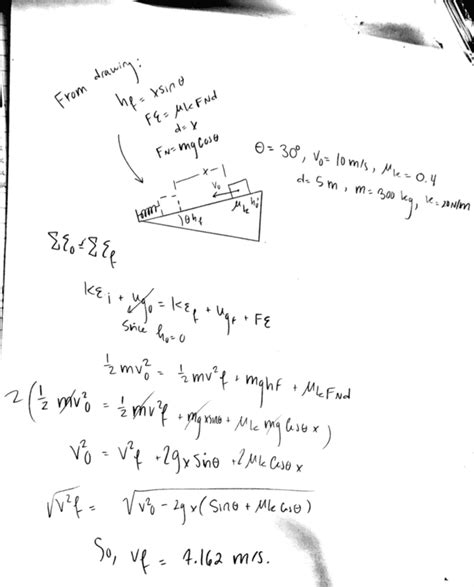 From drawing:
hf = xsinθ
FE = μk FNd
d = x
FN = mg Cosθ
θ = 30°, V₀ = 10 m/s, μk = 0.4
d = 5m, m = 300 kg, k = 20N/m
x
V₀
θ hf
μk h₀
ΣE₀ = ΣEf
KEi + Ug₀ = KEf + Ugf + FE
Since h₀=0
½ mv₀² = ½ mv²f + mghf + μk FNd
2 (½ mv₀² = ½ mv²f + mg xsinθ + μk mg Cosθ x)
V₀² = V²f + 2gx Sinθ + 2μk Cosθ x
√V²f = √V²₀ - 2gx (Sinθ + μk Cosθ)
So, Vf = 4.162 m/s.